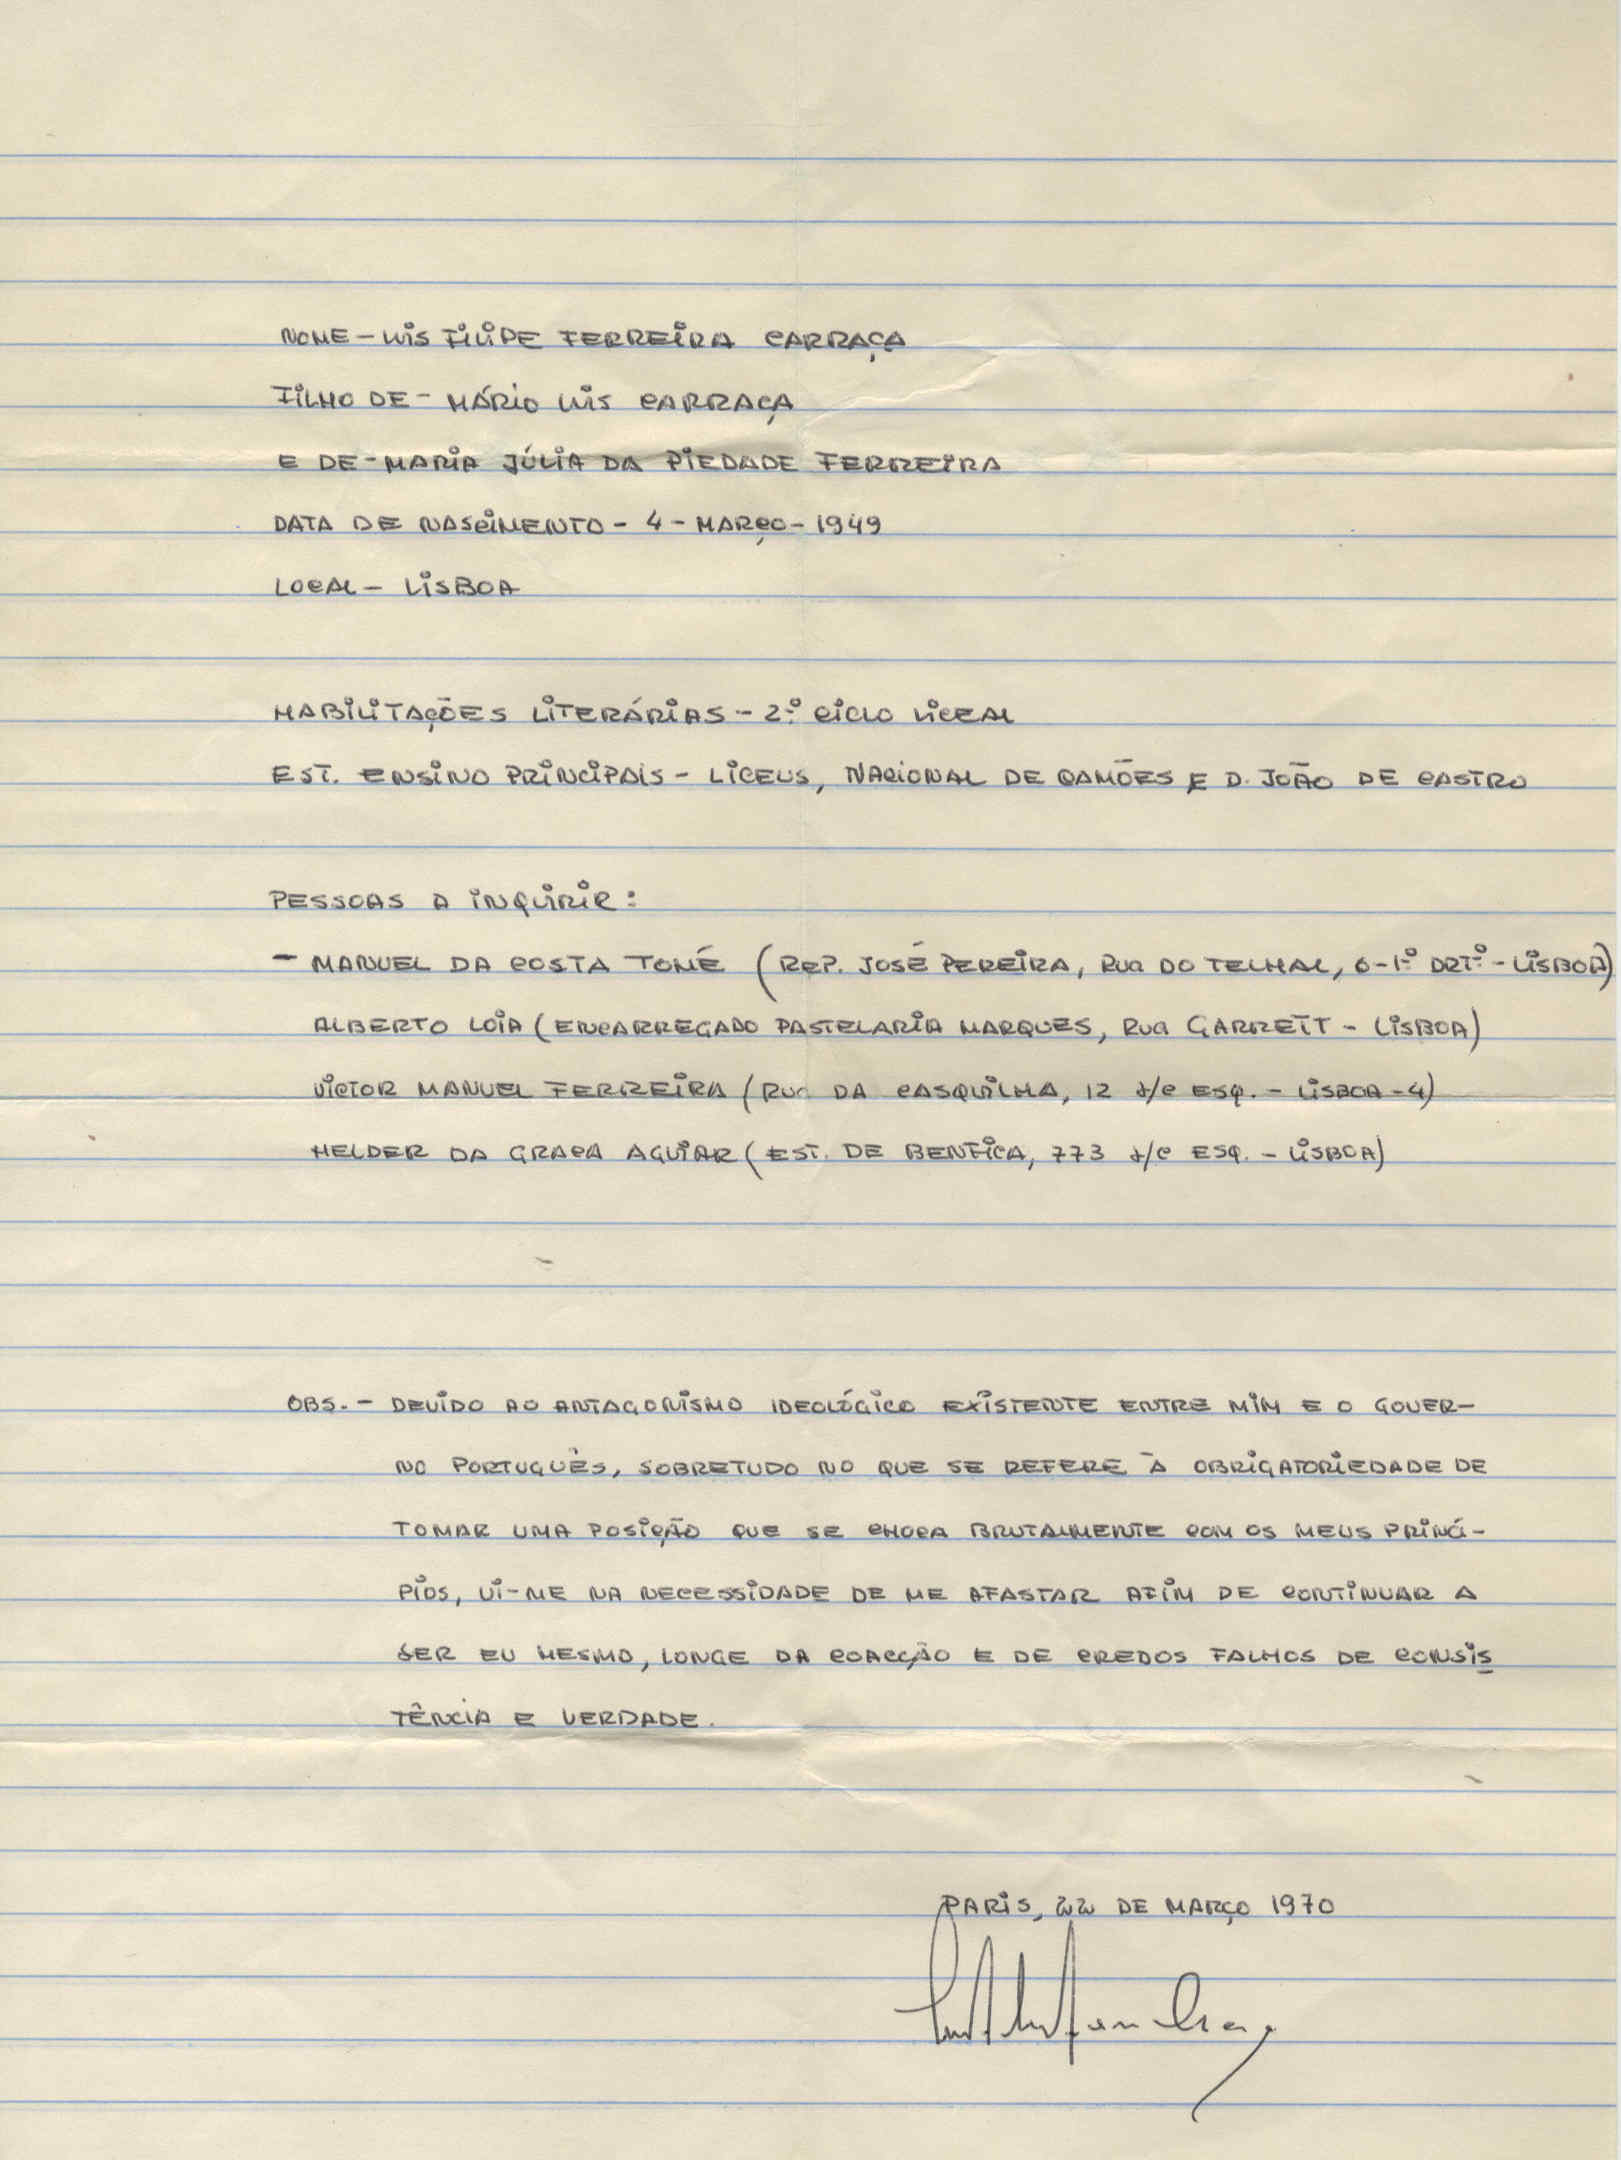 NOME - LUIS FILIPE FERREIRA CARRAÇA
FILHO DE - MÁRIO LUIS CARRAÇA
E DE - MARIA JÚLIA DA PIEDADE FERREIRA
DATA DE NASCIMENTO - 4 - MARÇO - 1949
LOCAL - LISBOA
HABILITAÇÕES LITERÁRIAS - 2.º CICLO LICEAL
EST. ENSINO PRINCIPAIS - LICEUS, NACIONAL DE CAMÕES E D. JOÃO DE CASTRO
PESSOAS A INQUIRIR:
- MANUEL DA COSTA TOMÉ (REP. JOSÉ PEREIRA, RUA DO TELHAL, 6-1.º DRT.º - LISBOA)
ALBERTO LOIA (ENCARREGADO PASTELARIA MARQUES, RUA GARRETT - LISBOA)
VICTOR MANUEL FERREIRA (RUA DA CASQUILHA, 12 r/c ESQ. - LISBOA - 4)
HELDER DA GRAÇA AGUIAR (EST. DE BENFICA, 773 r/c ESQ. - LISBOA)
OBS. - DEVIDO AO ANTAGONISMO IDEOLÓGICO EXISTENTE ENTRE MIM E O GOVER-
NO PORTUGUÊS, SOBRETUDO NO QUE SE REFERE À OBRIGATORIEDADE DE
TOMAR UMA POSIÇÃO QUE SE CHOCA BRUTALMENTE COM OS MEUS PRINCÍ-
PIOS, VI-ME NA NECESSIDADE DE ME AFASTAR AFIM DE CONTINUAR A
SER EU MESMO, LONGE DA COACÇÃO E DE CREDOS FALHOS DE CONSIS
TÊNCIA E VERDADE.
PARIS, 22 DE MARÇO 1970